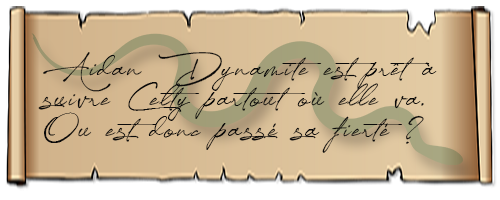 Aidan Dynamite est prêt à
suivre Cetty partout où elle va.
Ou est donc passé sa fierté ?